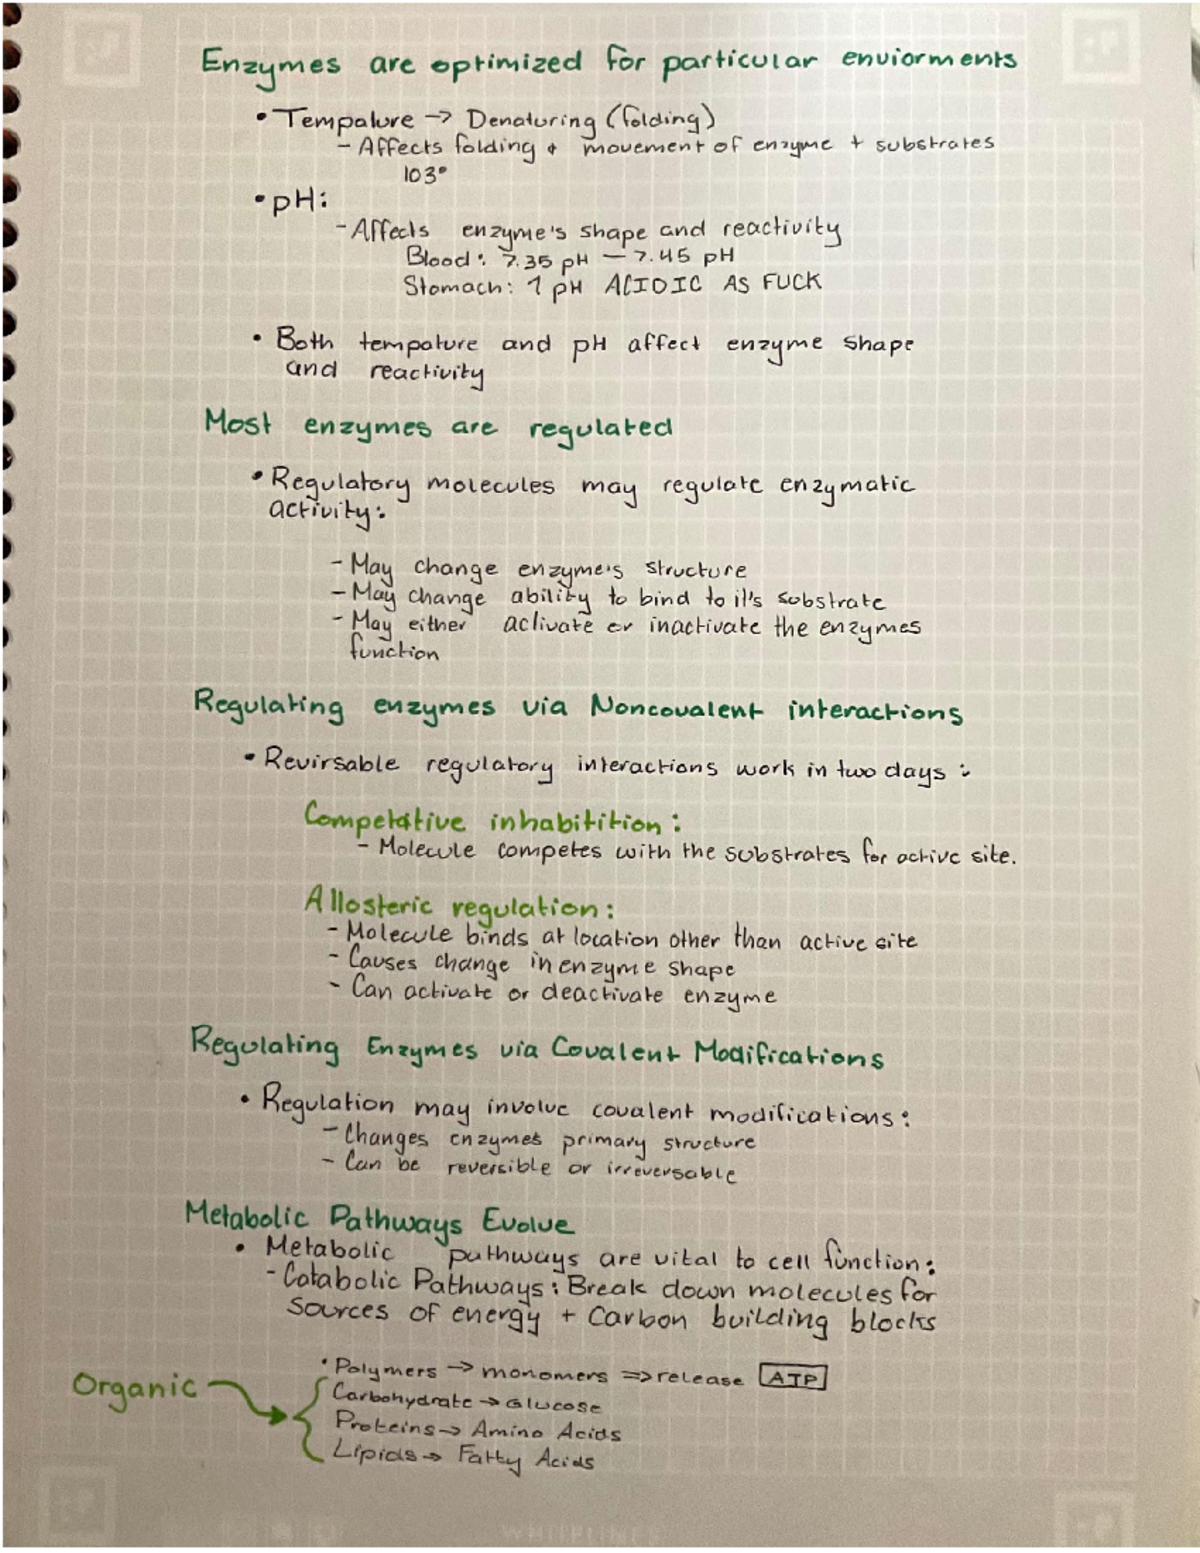 Enzymes are optimized for particular enviorments
• Tempature → Denaturing (folding)
- Affects folding + movement of enzyme + substrates
103°
• pH:
- Affects enzyme's shape and reactivity
Blood: 7.35 pH — 7.45 pH
Stomach: 1 pH ACIDIC AS FUCK
• Both tempature and pH affect enzyme shape
and reactivity
Most enzymes are regulated
• Regulatory molecules may regulate enzymatic
activity:
- May change enzyme's structure
- May change ability to bind to it's substrate
- May either activate or inactivate the enzymes
function
Regulating enzymes via Noncovalent interactions
• Revirsable regulatory interactions work in two days:
Competative inhabitition:
- Molecule competes with the substrates for active site.
Allosteric regulation:
- Molecule binds at location other than active site
- Causes change in enzyme shape
- Can activate or deactivate enzyme
Regulating Enzymes via Covalent Modifications
• Regulation may involve covalent modifications:
- Changes enzymes primary structure
- Can be reversible or irreversable
Metabolic Pathways Evolve
• Metabolic pathways are vital to cell function:
- Catabolic Pathways: Break down molecules for
sources of energy + Carbon building blocks
• Polymers → monomers ⇒ release ATP
Organic
Carbohydrate → Glucose
Proteins → Amino Acids
Lipids → Fatty Acids
WHITELINES